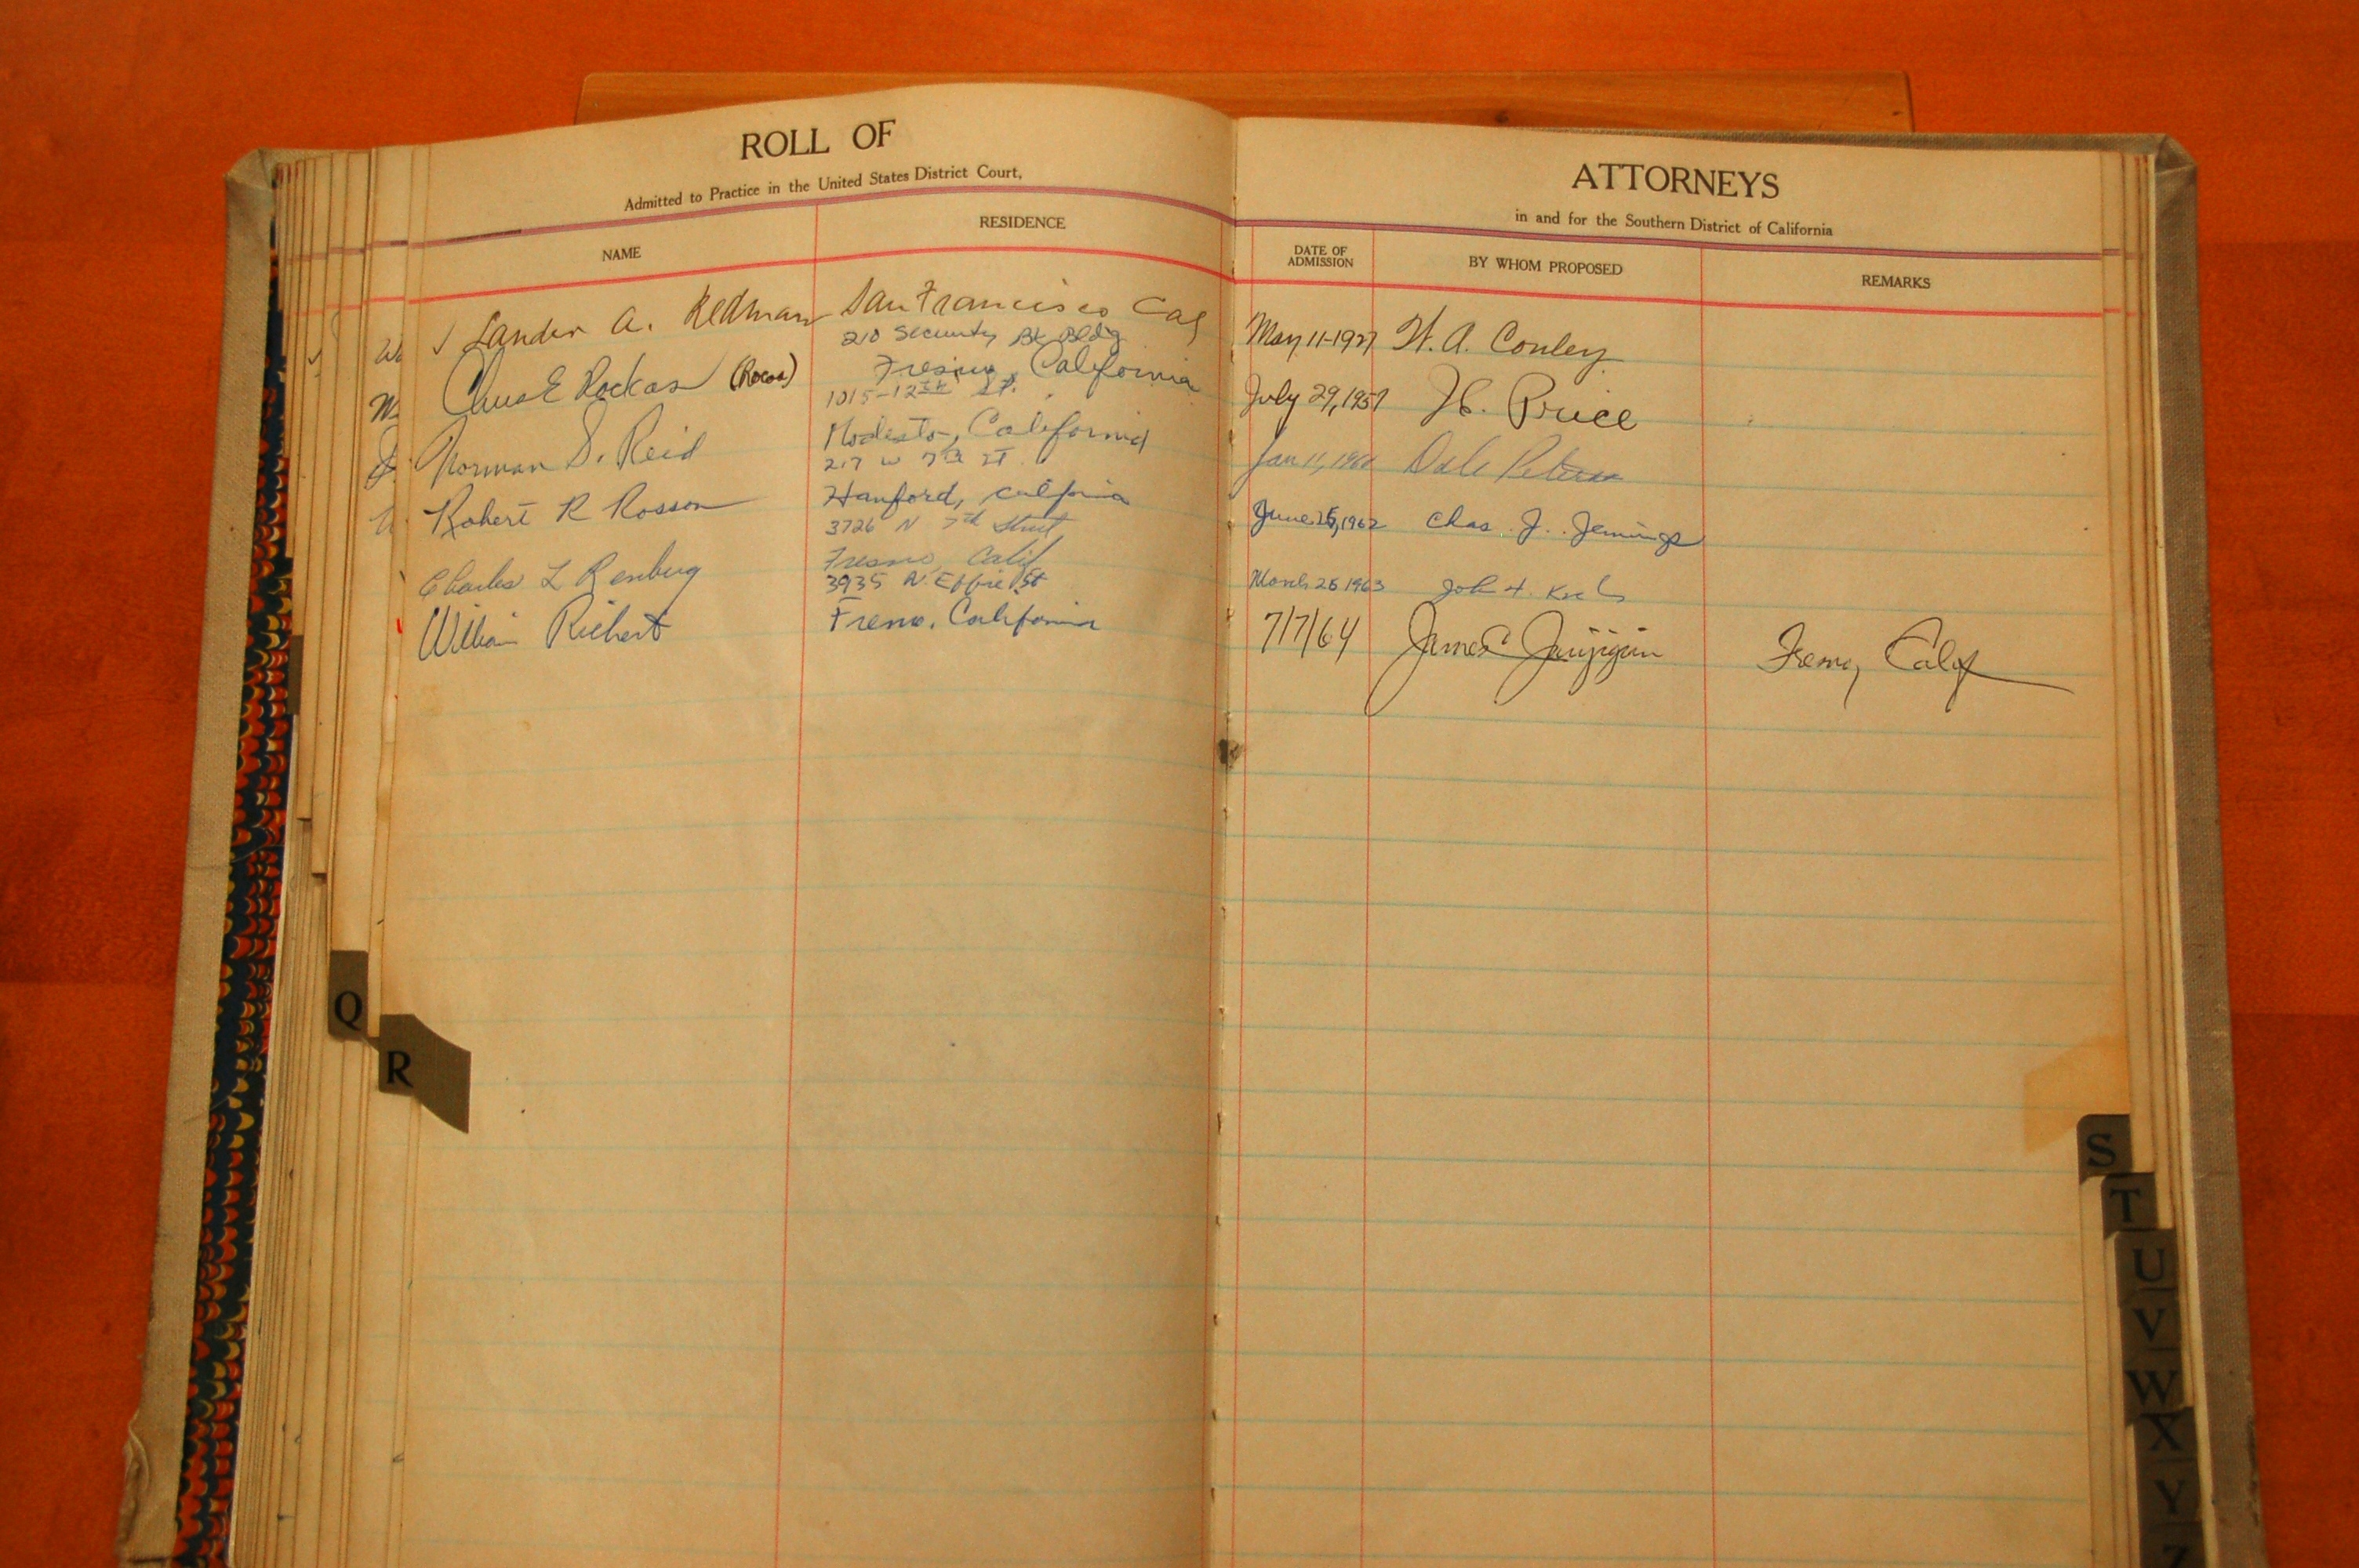 ROLL OF
Admitted to Practice in the United States District Court,
NAME
RESIDENCE
Lander A. Redman San Francisco Cal
210 Security Bk Bldg
Chris E Rockas (Rocas) Fresno, California
1015-12th St.
Norman S. Reid Modesto, California
217 W 7th ST.
Robert R Rosson Hanford, California
3726 N 7th Street
Fresno, Calif
Charles L Renberg
3935 N. Effie St
William Richert Fresno, California
ATTORNEYS
in and for the Southern District of California
DATE OF
ADMISSION
BY WHOM PROPOSED
REMARKS
May 11-1927 W. A. Conley
July 29, 1957 H. Price
Jan 11, Dale
June 1962 Chas. J. Jennings
March 1963 John H.
7/7/64 James Fresno, Calif
Q
R
S
T
U
V
W
X
Y
Z